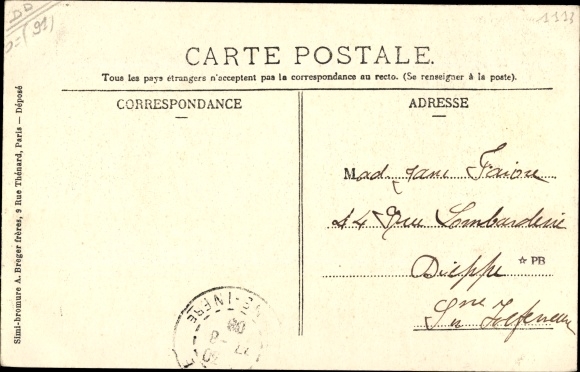 DD
(91)
1113
CARTE POSTALE.
Tous les pays étrangers n'acceptent pas la correspondance au recto. (Se renseigner à la poste).
CORRESPONDANCE
ADRESSE
Simi-bromure A. Breger frères, 9 Rue Thénard, Paris — Déposé
Mad
44 Rue Lombarderie
Dieppe
☆ PB
Sne
INFRE